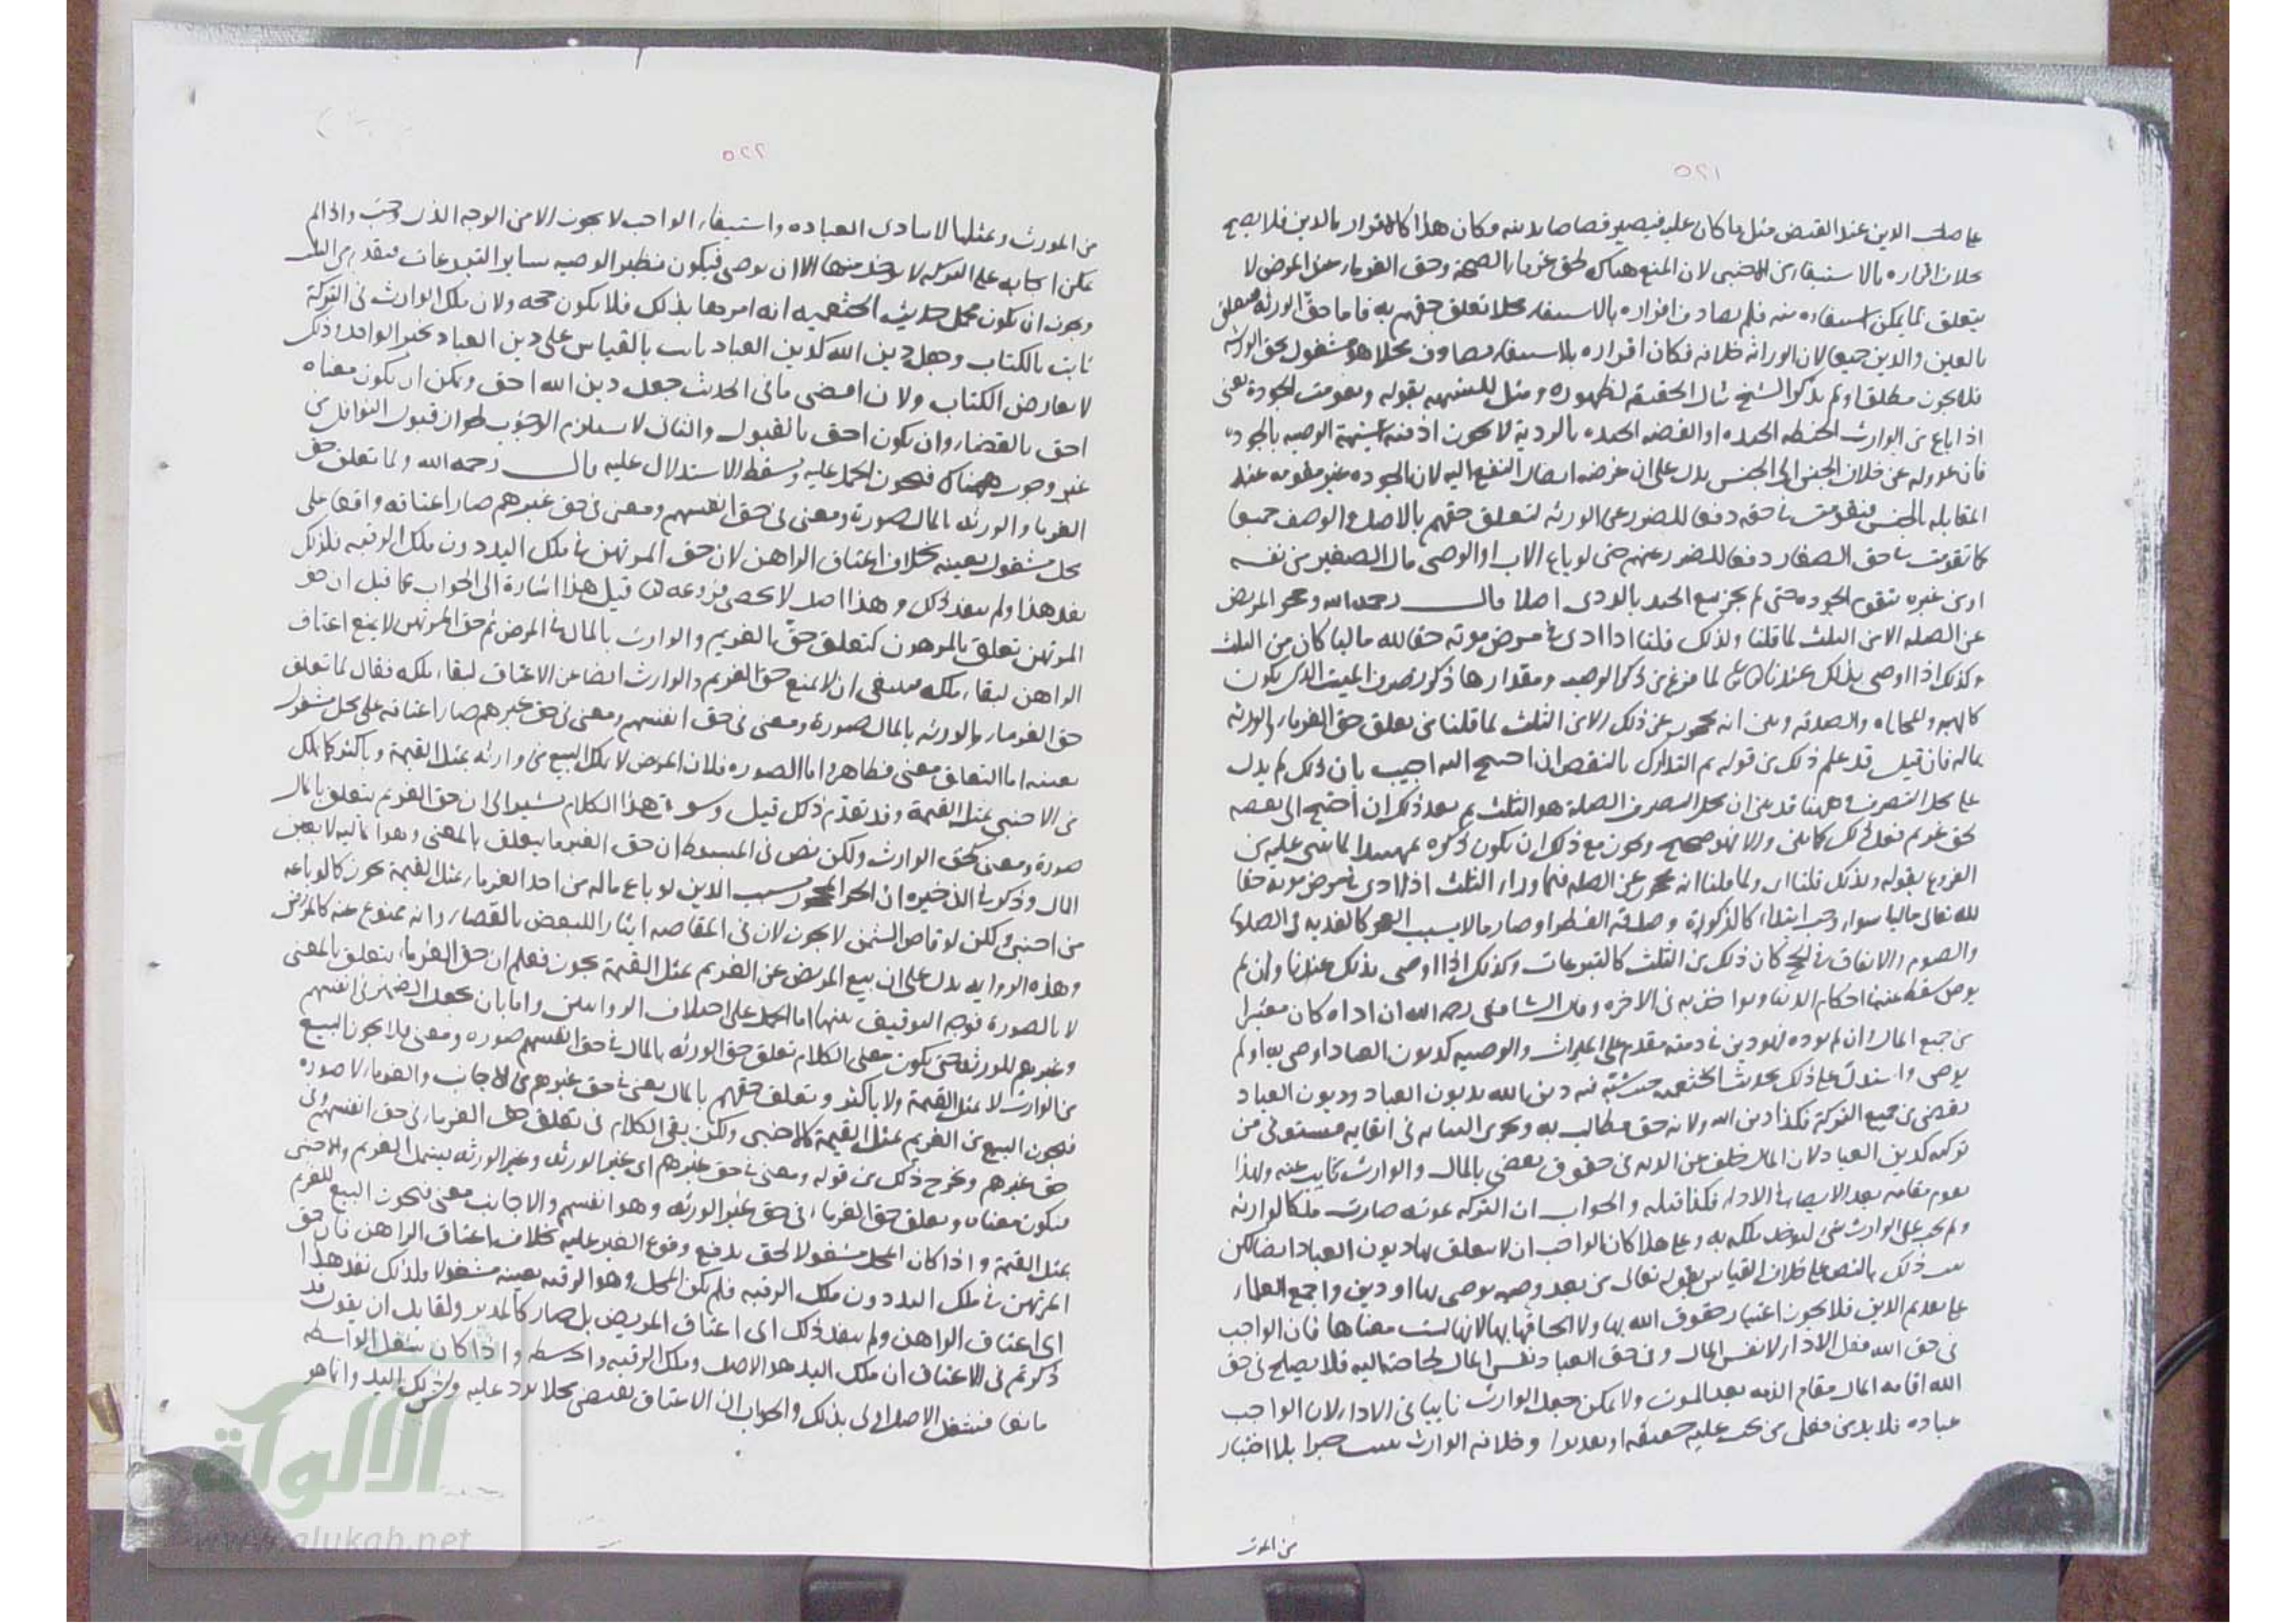 ٥٢١
على صاحب الدين عند القبض مثل ما كان عليه فيصير قصاصا بدينه فكان هذا كالاقرار بالدين فلا يصح
بخلاف اقراره بالاستيفاء من الاجنبي لان المنع هناك لحق غرماء الصحة وحق الغرماء عند المرض لا
يتعلق بما يمكن استيفاءه منه فلم يصادف اقراره بالاستيفاء محلا تعلق حقهم به فاما حق الورثة فمتعلق
بالعين والدين جميعا لان الوراثة خلافة فكان اقراره بالاستيفاء مصادف محلا هو مشغول بحق الورثة
فلا يجوز مطلقا ولم يذكر الشيخ مثال الحقيقة لظهوره ومثل للشبهة بقوله وتقومت الجودة يعني
اذا باع من الوارث الحنطة الجيدة او الفضة الجيدة بالردية لا يجوز اذ فيه شبهة الوصية بالجودة
فان عدوله عن خلاف الجنس الى الجنس يدل على ان غرضه ايصال النفع اليه لان الجودة غير متقومة عند
المقابلة بالجنس فتقومت في حقه دفعا للضرر عن الورثة لتعلق حقهم بالاصل والوصف جميعا
كما تقومت في حق الصغار دفعا للضرر عنهم حتى لو باع الاب او الوصي مال الصغير من نفسه
او من غيره تتقوم الجودة حتى لم يجز بيع الجيد بالردى اصلا قال رحمه الله وحجر المريض
عن الصلة الا من الثلث لما قلنا ولذلك قلنا اذا ادى في مرض موته حقا لله ماليا كان من الثلث
وكذلك اذا اوصى بذلك عندنا لما فرغ من ذكر الوصية ومقدارها ذكر تصرف الميت الذى يكون
كالهبة والمحاباة والصدقة وبين انه محجور عن ذلك الا من الثلث لما قلنا من تعلق حق الغرماء والورثة
بماله فان قيل قد علم ذلك من قوله ثم التدارك بالنقض ان احتيج اليه اجيب بان ذلك لم يدل
على محل التصرف وههنا قد بين ان محل التصرف الصلة هو الثلث ثم بعد ذلك ان احتيج الى نقضه
لحق غريم فعل ذلك كما بين والا فهو صحيح ويجوز مع ذلك ان يكون ذكره تمهيدا لما بنى عليه من
الفروع بقوله ولذلك قلنا اى ولما قلنا انه محجور عن الصلة فيما وراء الثلث اذا ادى في مرض موته حقا
لله تعالى ماليا سواء وجب ابتداء كالزكوة وصدقة الفطر او صار مالا بسبب العجز كالفدية في الصلاة
والصوم والانفاق في الحج كان ذلك من الثلث كالتبرعات وكذلك اذا اوصى بذلك عندنا وان لم
يوص سقط عنه احكام الدنيا ويواخذ به في الاخرة وقال الشافعي رحمه الله ان اداه كان معتبرا
من جميع المال وان لم يوده فهو دين في ذمته مقدم على الميراث والوصية كديون العباد اوصى به او لم
يوصى واستدل على ذلك بحديث الخثعمية حيث شبه فيه دين الله بديون العباد وديون العباد
تقضى من جميع التركة فكذا دين الله ولانه حق مطالب به وتجرى النيابة في ايفائه مستوفى من
تركته كدين العباد لان المال خلف عن الذمة في حقوق تقضى بالمال والوارث نايب عنه ولهذا
يقوم مقامه بعد الايصاء في الاداء فكذا قبله والجواب ان التركة بموته صارت ملكا لوارثه
ولم يجب على الوارث شي ليوخذ ملكه به وعلى هذا كان الواجب ان لا يتعلق بها ديون العباد ايضا لكن
ثبت ذلك بالنص على خلاف القياس بقوله تعالى من بعد وصية يوصى بها او دين واجمع العلماء
على تقديم الدين فلا يجوز اعتبار حقوق الله بها ولا الحاقها بها لانها ليست معناها فان الواجب
في حق الله فعل الاداء لا نفس المال وفي حق العباد نفس المال لحاجته اليه فلا يصلح في حق
الله اقامة المال مقام الذمة بعد الموت ولا يمكن جعل الوارث نايبا في الاداء لان الواجب
عبادة فلا بد من فعل من يجب عليه حقيقة او تقديرا وخلافة الوارث تثبت جبرا بلا اختيار
من المورث
٥٢٢
من المورث وبمثلها لا يتادى العبادة واستيفاء الواجب لا يجوز الا من الوجه الذى وجب واذا لم
يمكن ايجابه على التركة لا يوخذ منها الا ان يوصى فيكون نظير الوصية بساير التبرعات فيقدم من الثلث
ويجوز ان يكون محمل حديث الخثعمية انه امرها بذلك فلا يكون حجة ولان ملك الوارث في التركة
ثابت بالكتاب وجعل دين الله كدين العباد ثابت بالقياس على دين العباد بخبر الواحد وذلك
لا يعارض الكتاب ولان اقصى ما في الحديث جعل دين الله احق ويمكن ان يكون معناه
احق بالقضاء وان يكون احق بالقبول والثاني لا يستلزم الوجوب لجواز قبول النوافل من
غير وجوب هناك فيجوز الحمل عليه ويسقط الاستدلال عليه قال رحمه الله ولما تعلق حق
الغرماء والورثة بالمال صورة ومعنى في حق انفسهم ومعنى في حق غيرهم صار اعتاقه واقعا على
محل مشغول بعينه بخلاف اعتاق الراهن لان حق المرتهن في ملك اليد دون ملك الرقبة فلذلك
نفذ هذا ولم ينفذ ذلك وهذا اصل لا يحصى فروعه قيل هذا اشارة الى الجواب عما قيل ان حق
المرتهن تعلق بالمرهون كتعلق حق الغريم والوارث بالمال في المرض ثم حق المرتهن لا يمنع اعتاق
الراهن لبقاء ملكه فينبغي ان لا يمنع حق الغريم والوارث ايضا عن الاعتاق لبقاء ملكه فقال لما تعلق
حق الغرماء والورثة بالمال صورة ومعنى في حق انفسهم ومعنى في حق غيرهم صار اعتاقه على محل مشغول
بعينه اما التعلق معنى فظاهر واما الصورة فلان المريض لا يملك البيع من وارثه بمثل القيمة وباكثر كما يملك
من الاجنبي بمثل القيمة وقد تقدم ذلك قيل وسوق هذا الكلام يشير الى ان حق الغريم يتعلق بالمال
صورة ومعنى كحق الوارث ولكن نص في المبسوط ان حق الغرما يتعلق بالمعنى وهو المالية لا بعين
المال وذكر في الذخيرة ان الحر المحجور بسبب الدين لو باع ماله من احد الغرماء بمثل القيمة يجوز كما لو باعه
من اجنبي ولكن لو قاص الثمن لا يجوز لان في المقاصة ايثارا للبعض بالقضاء وانه ممنوع عنه كالمريض
وهذه الرواية يدل على ان بيع المريض من الغريم بمثل القيمة يجوز فعلم ان حق الغرماء يتعلق بالمعنى
لا بالصورة فوجه التوفيق بينهما اما الحمل على اختلاف الروايتين واما بان يجعل الضمير في انفسهم
وغيرهم للورثة حتى يكون معنى الكلام تعلق حق الورثة بالمال في حق انفسهم صورة ومعنى فلا يجوز البيع
من الوارث لا بمثل القيمة ولا باكثر وتعلق حقهم بالمال معنى في حق غيرهم من الاجانب والغرماء لا صورة
فيجوز البيع من الغريم بمثل القيمة كالاجنبي ولكن بقي الكلام في تعلق حق الغرماء في حق انفسهم وفي
حق غيرهم ويخرج ذلك من قوله ومعنى في حق غيرهم اى غير الورثة وغير الورثة يشمل الغريم والاجنبي
فيكون معناه وتعلق حق الغرماء في حق غير الورثة وهو انفسهم والاجانب معنى فيجوز البيع للغريم
بمثل القيمة واذا كان المحل مشغولا لحق يدفع وقوع الغير عليه بخلاف اعتاق الراهن فان حق
المرتهن في ملك اليد دون ملك الرقبة فلم يكن المحل وهو الرقبة بعينه مشغولا فلذلك نفذ هذا
اى اعتاق الراهن ولم ينفذ ذلك اى اعتاق المريض بل صار كالمدبر ولقايل ان يقول قد
ذكرتم في الاعتاق ان ملك اليد هو الاصل وملك الرقبة واسطة واذا كان شغل الواسطة
مانعا فشغل الاصل اولى بذلك والجواب ان الاعتاق يقتضي محلا يرد عليه وليس ذلك اليد وانما هو
الألوكة
www.alukah.net